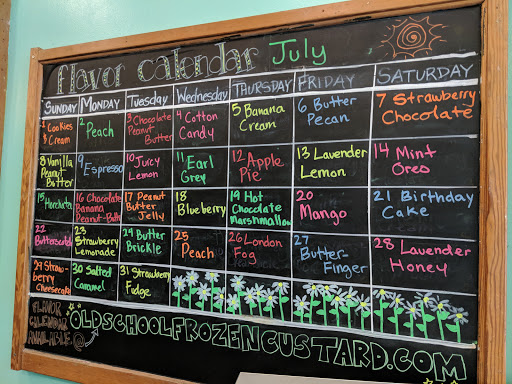 flavor calendar July
SUNDAY MONDAY Tuesday Wednesday THURSDAY FRIDAY SATURDAY
1 Cookies & Cream
2 Peach
3 Chocolate Peanut Butter
4 Cotton Candy
5 Banana Cream
6 Butter Pecan
7 Strawberry Chocolate
8 Vanilla Peanut Butter
9 Espresso
10 Juicy Lemon
11 Earl Grey
12 Apple Pie
13 Lavender Lemon
14 Mint Oreo
15 Horchata
16 Chocolate Banana Peanut-Butter
17 Peanut Butter Jelly
18 Blueberry
19 Hot Chocolate Marshmallow
20 Mango
21 Birthday Cake
22 Butterscotch
23 Strawberry Lemonade
24 Butter Brickle
25 Peach
26 London Fog
27 Butter-Finger
28 Lavender Honey
29 Straw-berry Cheesecake
30 Salted Caramel
31 Strawberry Fudge
FLAVOR CALENDAR AVAILABLE @
OLDSCHOOLFROZENCUSTARD.COM